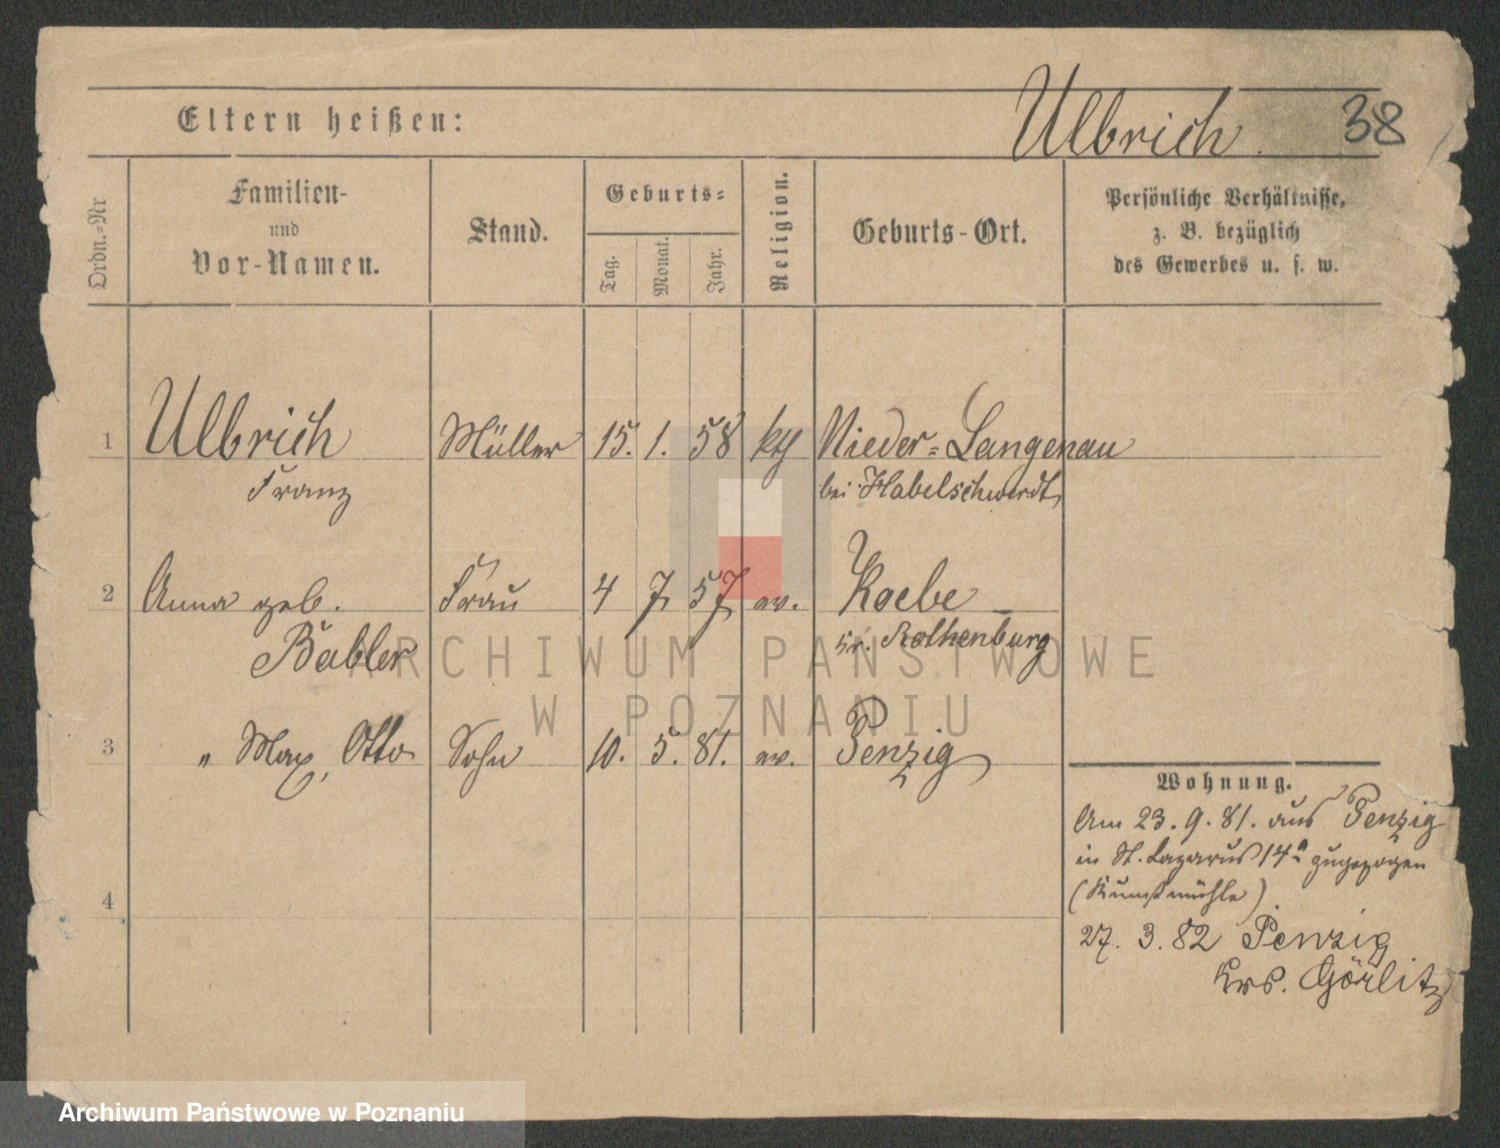 Ulbrich.
38
Eltern heißen:
Ordn.-Nr
Familien-
und
Vor-Namen.
Stand.
Geburts-
Tag.
Monat.
Jahr.
Religion.
Geburts-Ort.
Persönliche Verhältnisse,
z. B. bezüglich
des Gewerbes u. s. w.
1 Ulbrich Müller 15. 1. 58 kth Nieder-Langenau
Franz bei Habelschwerdt
2 Anna geb. Frau 4 7 57 ev. Koebe
Babler Kr. Rothenburg
3 " Max, Otto Sohn 10. 5. 81. ev. Penzig
4
Wohnung.
Am 23. 9. 81. aus Penzig
in St. Lazarus 14a zugezogen
(Kunstmühle)
27. 3. 82 Penzig
Krs. Görlitz
ARCHIWUM PAŃSTWOWE
W POZNANIU
Archiwum Państwowe w Poznaniu